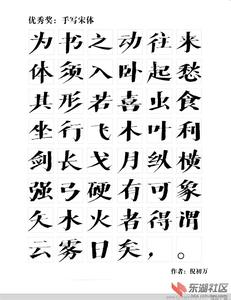 优秀奖：手写宋体
为书之动往来
体须入卧起愁
其形若喜虫食
坐行飞木叶利
剑长戈月纵横
强弓硬有可象
矢水火者得谓
云雾日矣，。
作者：倪初万
东湖社区